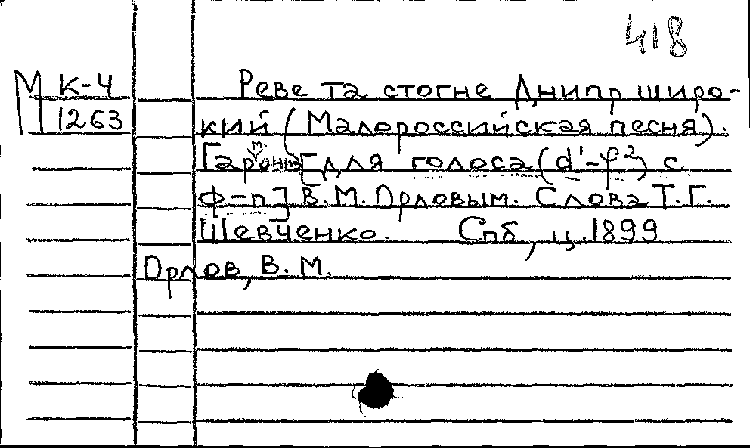 418
М К-4 Реве та стогне Днипр широ-
1263 кий (Малороссийская песня).
[для голоса (d'-f²) с
ф-п] В.М. Орловым. Слова Т.Г.
Шевченко. Спб, ц. 1899
Орлов, В.М.